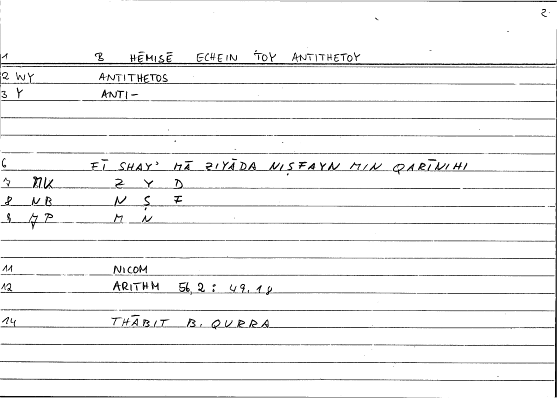 2
1 B HĒMISĒ ECHEIN TOY ANTITHETOY
2 WY ANTITHETOS
3 Y ANTI-
6 FĪ SHAY' MĀ ZIYĀDA NIṢFAYN MIN QARĪNIHI
7 Z Y D
8 NB N Ṣ F
9 M N
11 NICOM
12 ARITHM 56,2 : 49.18
14 THĀBIT B. QURRA